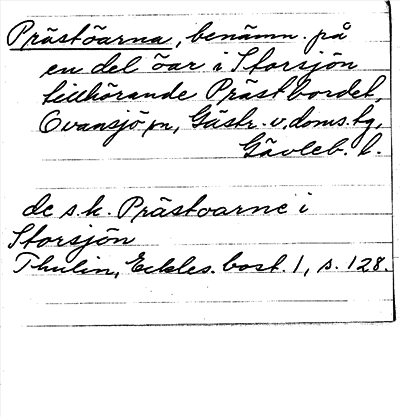 Prästöarna, benämn. på
en del öar i Storsjön
tillhörande Prästbordet,
Ovansjö sn, Gästr. v. doms. tg,
Gävleb. l.
de s.k. Prästoarne i
Storsjön
Thulin, Eckles. bost. 1, s. 128.